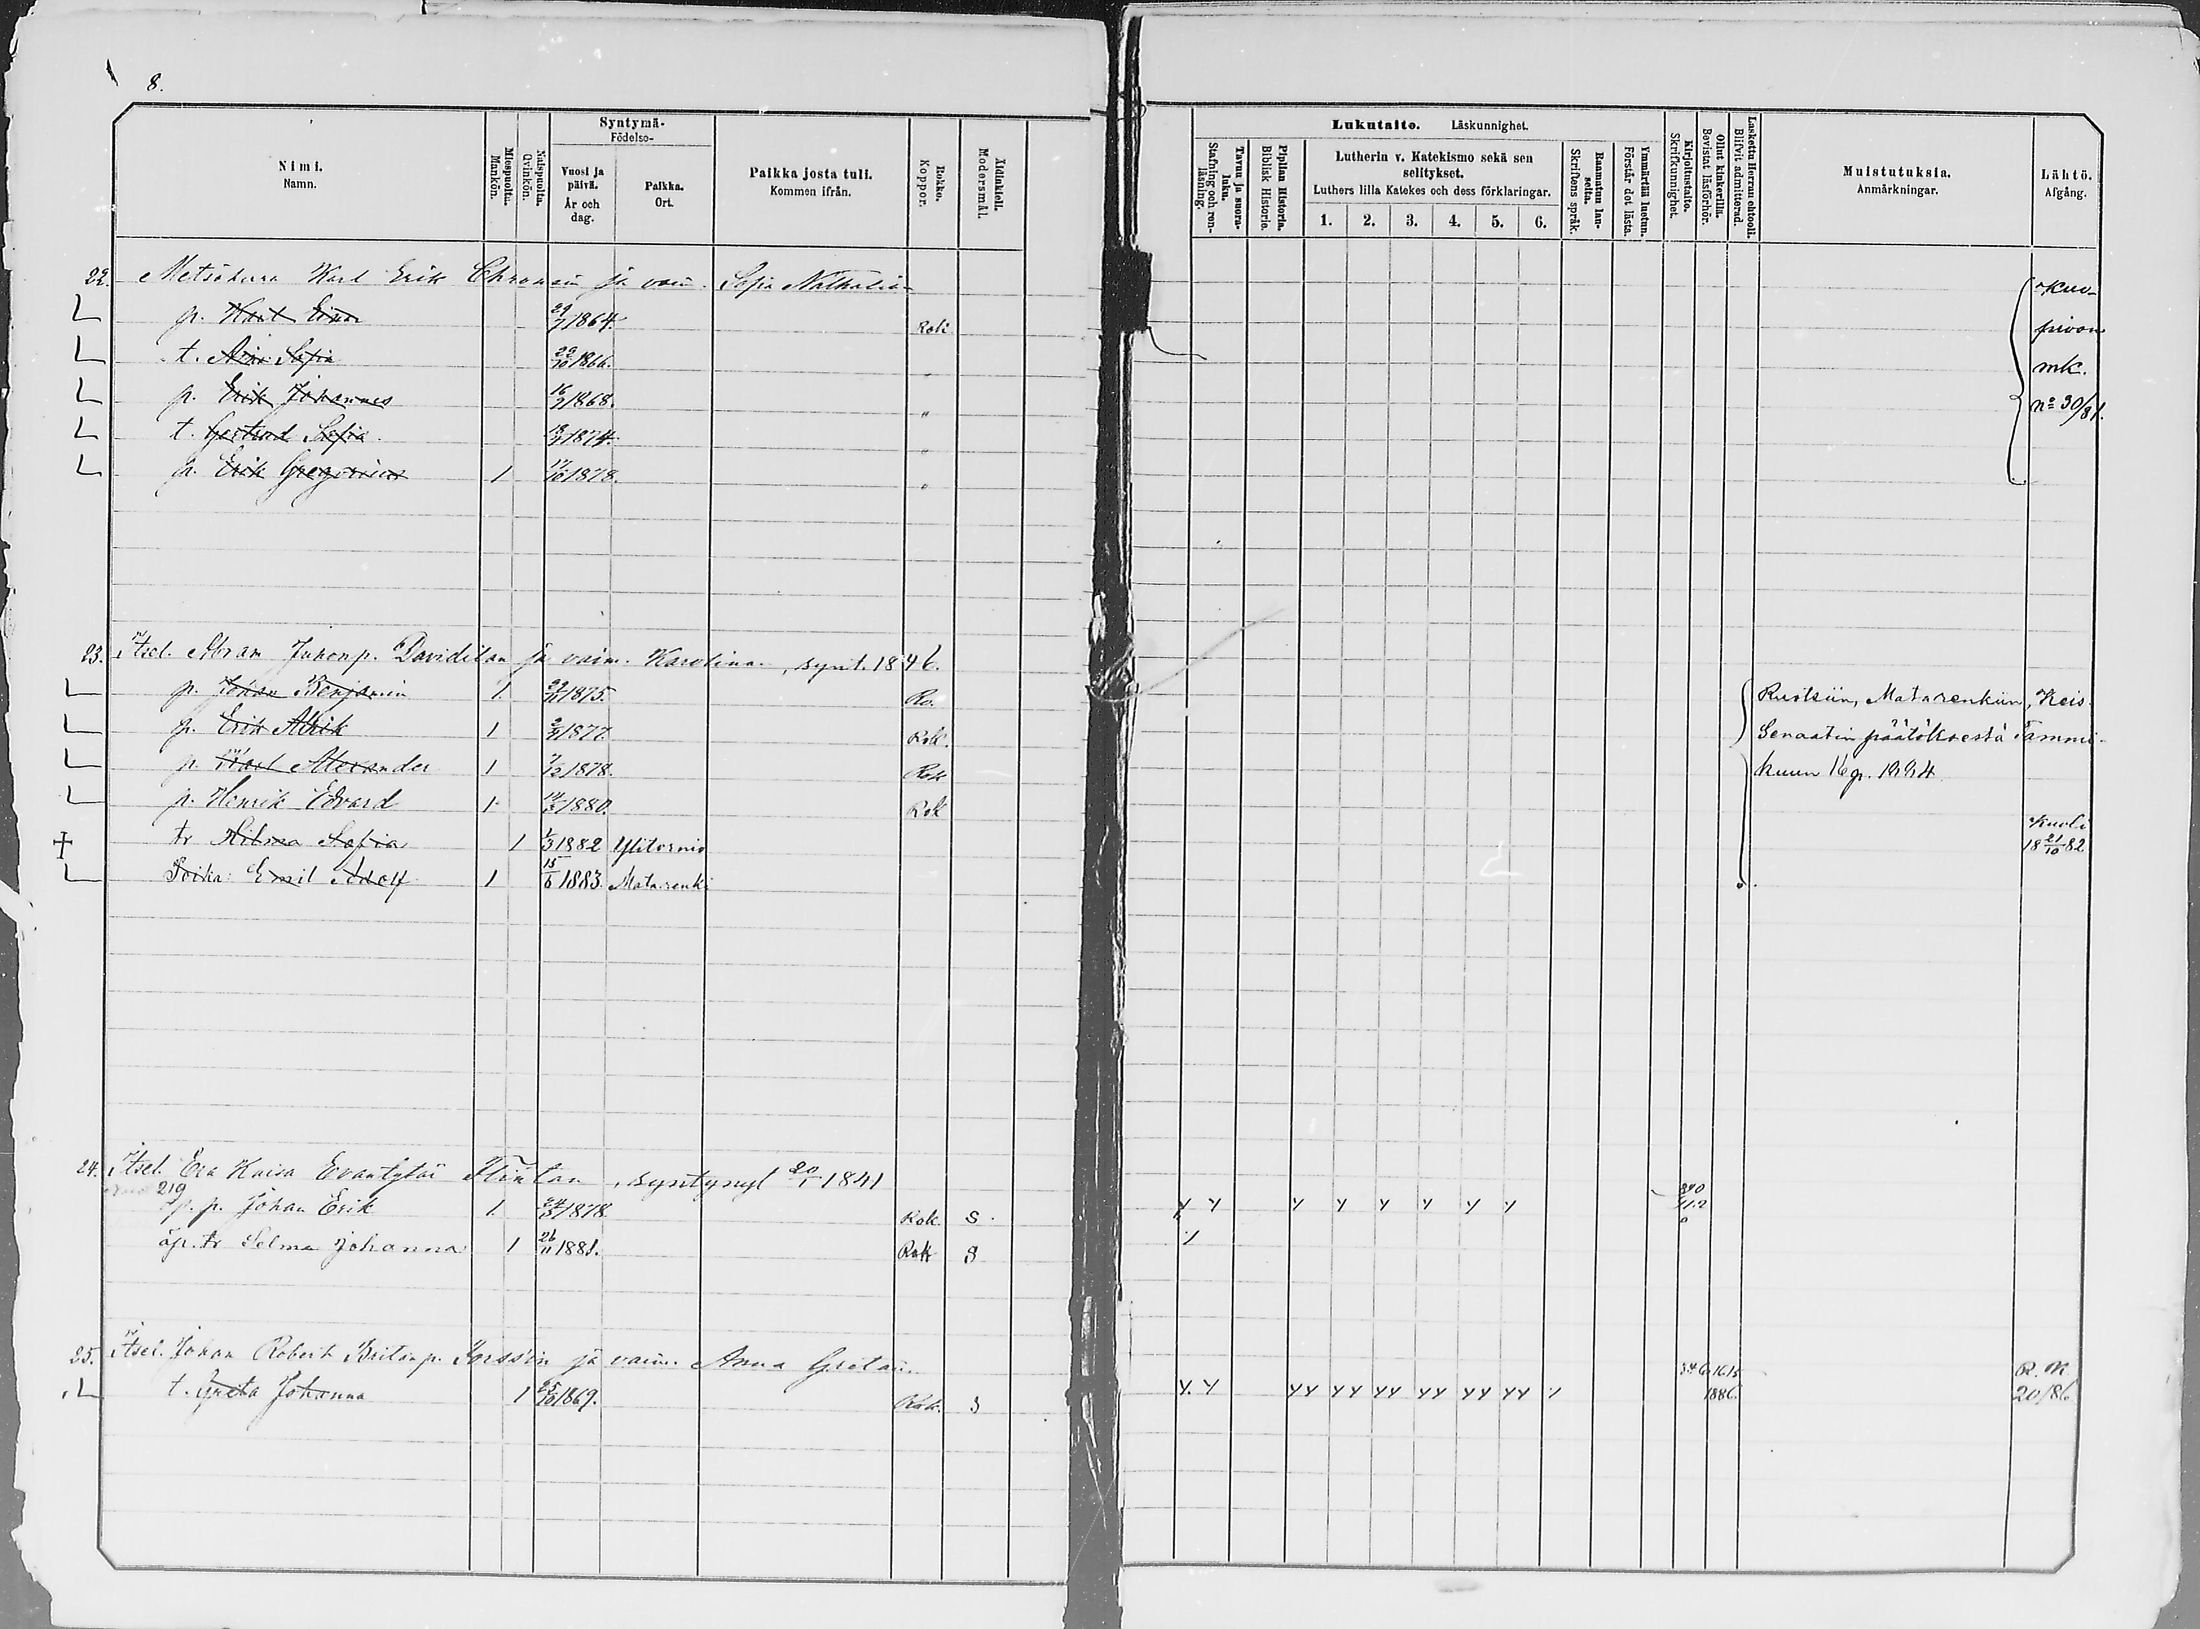 8.
Nimi.
Namn.
Miespuolia.
Mankön.
Naispuolia.
Qvinkön.
Syntymä-
Födelse-
Vuosi ja päivä.
År och dag.
Paikka.
Ort.
Paikka josta tuli.
Kommen ifrån.
Rokko.
Koppor.
Äidinkieli.
Modersmål.
Lukutaito. Läskunnighet.
Tavuu ja suora-luku.
Stafning och ren-läsning.
Piplian Historia.
Biblisk Historie.
Lutherin v. Katekismo sekä sen selitykset.
Luthers lilla Katekes och dess förklaringar.
1. 2. 3. 4. 5. 6.
Raamatun lau-seita.
Skriftens språk.
Ymmärtää luetun.
Förstår det lästa.
Kirjoitustaito.
Skrifkunnighet.
Ollut kinkerillä.
Bevistat läsförhör.
Laskettu Herran ehtooll.
Blifvit admitterad.
Muistutuksia.
Anmärkningar.
Lähtö.
Afgång.
22. Metsäherra Karl Erik ja vaim. Sofia Nathalia
p. Karl Einar 29/7 1864. Rok Kuo-
t. Aina Sofia 22/10 1866. " pivon
p. Erik Johannes 16/9 1868. " mk.
t. Gertrud Sofia 1874. " No 30/81.
p. Erik Gregorius 1 17/10 1878. "
23. Itsel. Abram Juhonp. Davidilan ja vaim. Karolina, synt. 1846.
p. Johan Benjamin 1 1875. Ro. Ruotsiin, Matarenkiin, Keis.
p. Erik Alrik 1 1877. Rok. Senaatin päätöksestä Tammi-
p. Karl Alexander 1 7/12 1878. Rok kuun 16 p. 1884
p. Henrik Edvard 1 14/3 1880. Rok
tr Hilma Sofia 1 1/3 1882 Ylitornio Kuoli 18 21/10 82
Poika: Emil Adolf 1 15/6 1883. Matarenki
24. Itsel. Eva Kaisa Evantytär , syntynyt 20/1 1841
219
p. Johan Erik 1 24/3 1878. Rok. S. 840
äp. tr Selma Johanna 1 26/11 1881. Rok S
25. Itsel. Johan Robert Britanp. ja vaim. Anna Gretan.
t. Greta Johanna 1 25/10 1869. Rok. S 1886 R. M 20/86